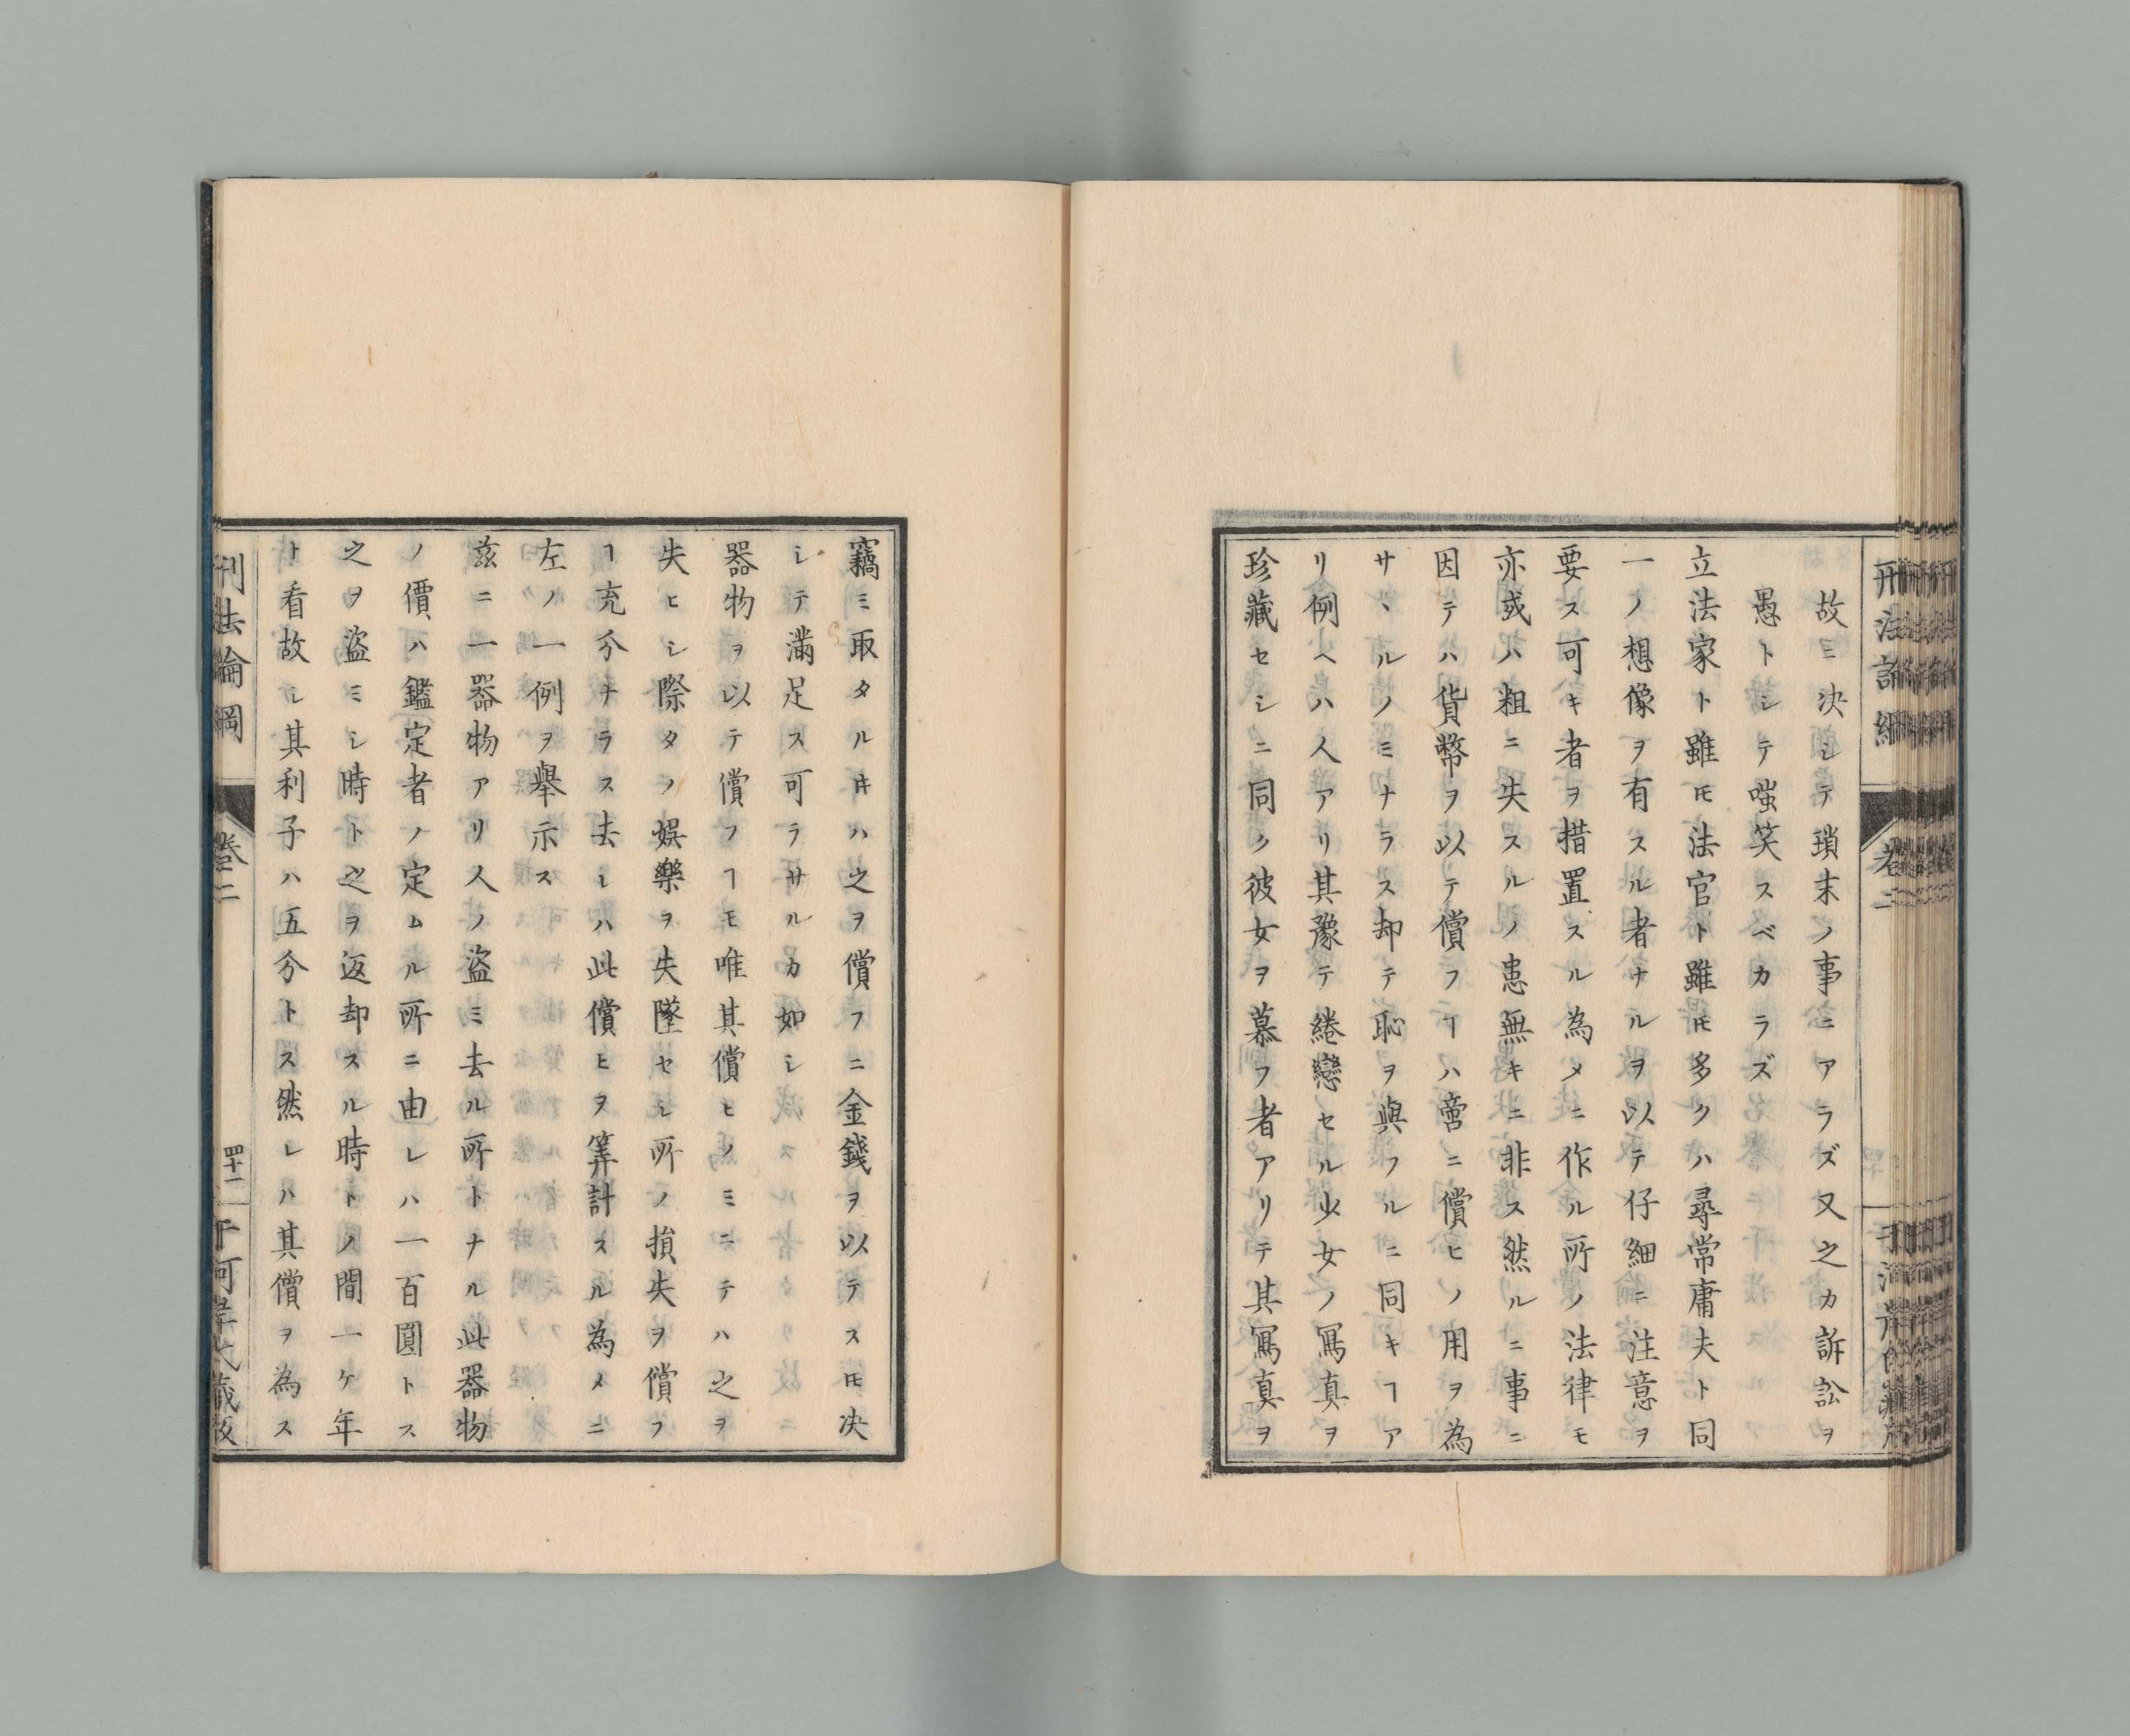 故ニ决シテ瑣末ノ事ニアラズ又之カ訴訟ヲ
愚トシテ嗤笑スベカラズ
立法家ト雖𪜈法官ト雖𪜈多クハ尋常庸夫ト同
一ノ想像ヲ有スル者ナルヲ以テ仔細ニ注意ヲ
要ス可キ者ヲ措置スル為メニ作ル所ノ法律モ
亦或ハ粗ニ失スルノ患無キニ非ス然ルニ事ニ
因テハ貨幣ヲ以テ償フヿハ啻ニ償ヒノ用ヲ為
サヽルノミナラス却テ恥ヲ與フルニ同キヿア
リ例ヘハ人アリ其豫テ綣戀セル少女ノ冩真ヲ
珍藏セシニ同ク彼女ヲ慕フ者アリテ其冩真ヲ
竊ミ取タル𪜈ハ之ヲ償フニ金錢ヲ以テス𪜈决
シテ滿足ス可ラサルカ如シ
器物ヲ以テ償フヿモ唯其償ヒノミニテハ之ヲ
失ヒシ際タノ娯樂ヲ失墜セシ所ノ損失ヲ償フ
ヿ充分ナラス去レハ此償ヒヲ筭計スル為メニ
左ノ一例ヲ舉示ス
茲ニ一器物アリ人ノ盜ミ去ル所トナル此器物
ノ價ハ鑑定者ノ定ムル所ニ由レハ一百圓トス
之ヲ盜ミシ時ト之ヲ返却スル時トノ間一ケ年
ト看故シ其利子ハ五分トス然レハ其償ヲ為ス
刑法論綱
卷二
四十一